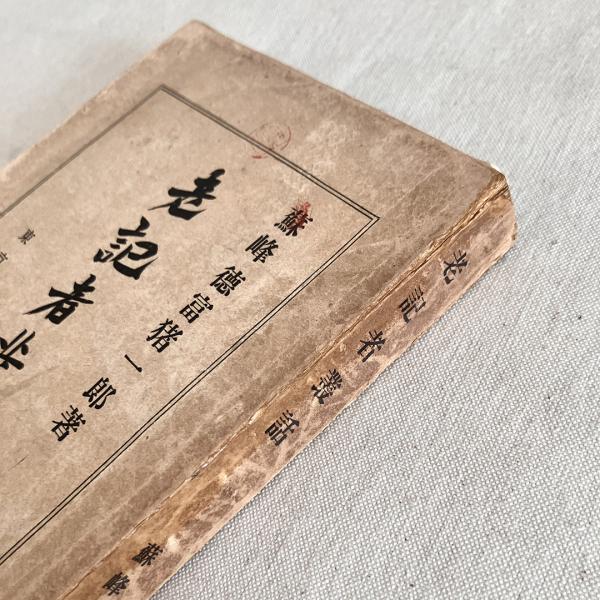 蘇峰德富猪一郎著
老記者叢
東京
老記者叢話
蘇峰